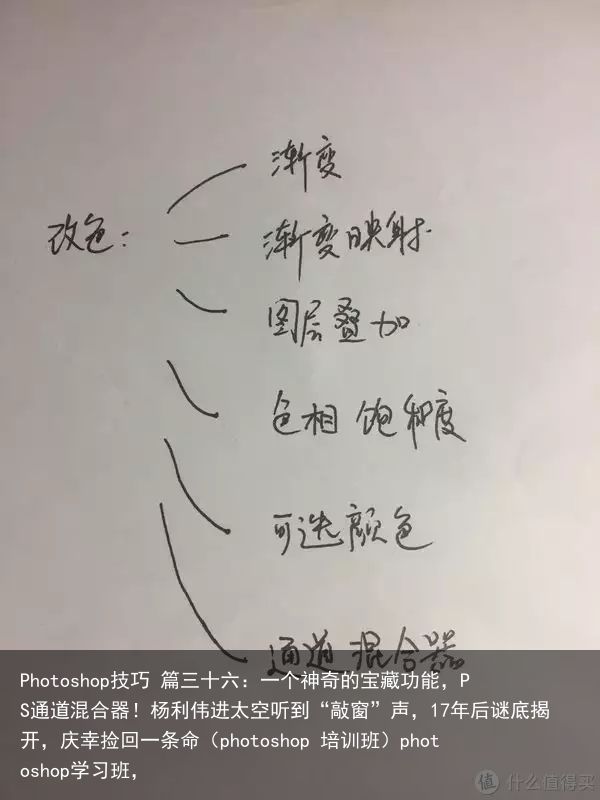 渐变
改色：
渐变映射
图层叠加
色相 饱和度
可选颜色
通道混合器
Photoshop技巧 篇三十六：一个神奇的宝藏功能，P
S通道混合器！杨利伟进太空听到“敲窗”声，17年后谜底揭
开，庆幸捡回一条命（photoshop 培训班）phot
oshop学习班，
值 什么值得买